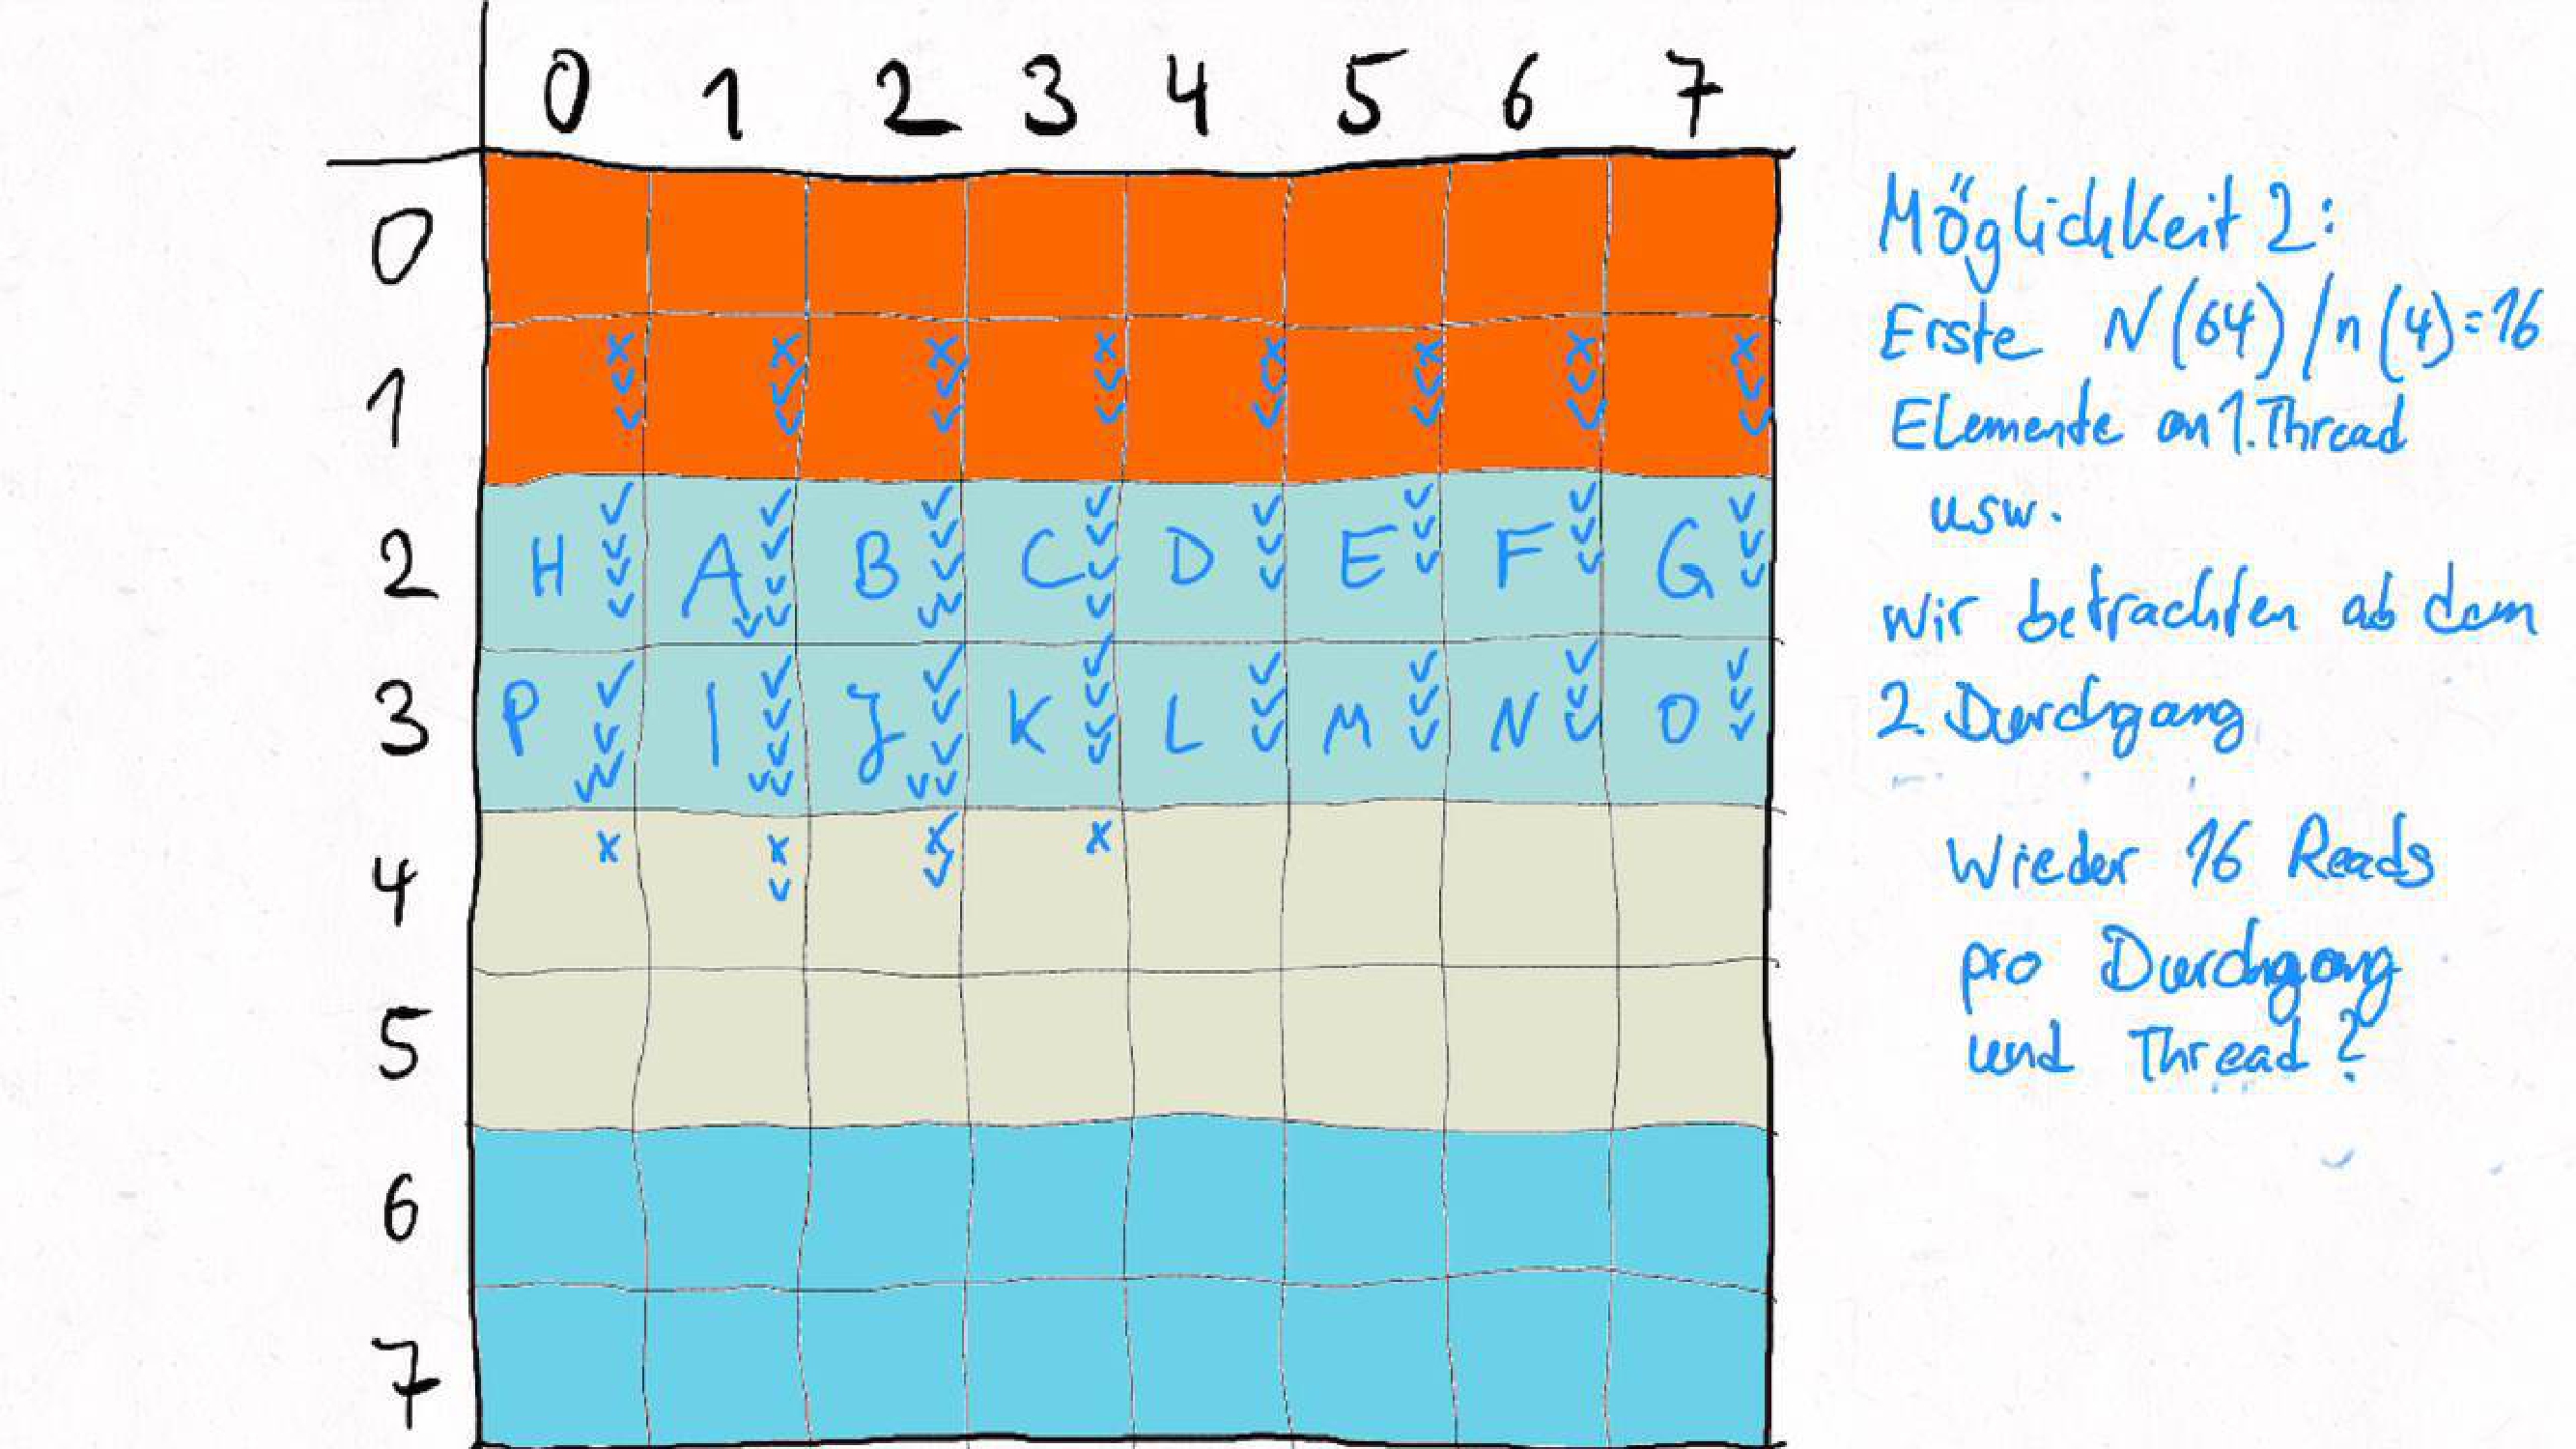 0 1 2 3 4 5 6 7
0
1 x x x x x x x x
2 H A B C D E F G
3 P I J K L M N O
4 x x x x
5
6
7
Möglichkeit 2:
Erste N(64)/n(4)=16
Elemente an 1. Thread
usw.
Wir betrachten ab dem
2. Durchgang
Wieder 16 Reads
pro Durchgang
und Thread?